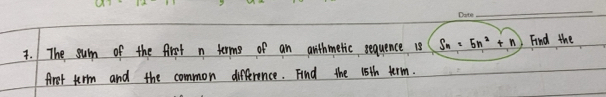 Date
7. The sum of the first n terms of an arithmetic sequence is Sn = 5n² + n. Find the
first term and the common difference. Find the 15th term.